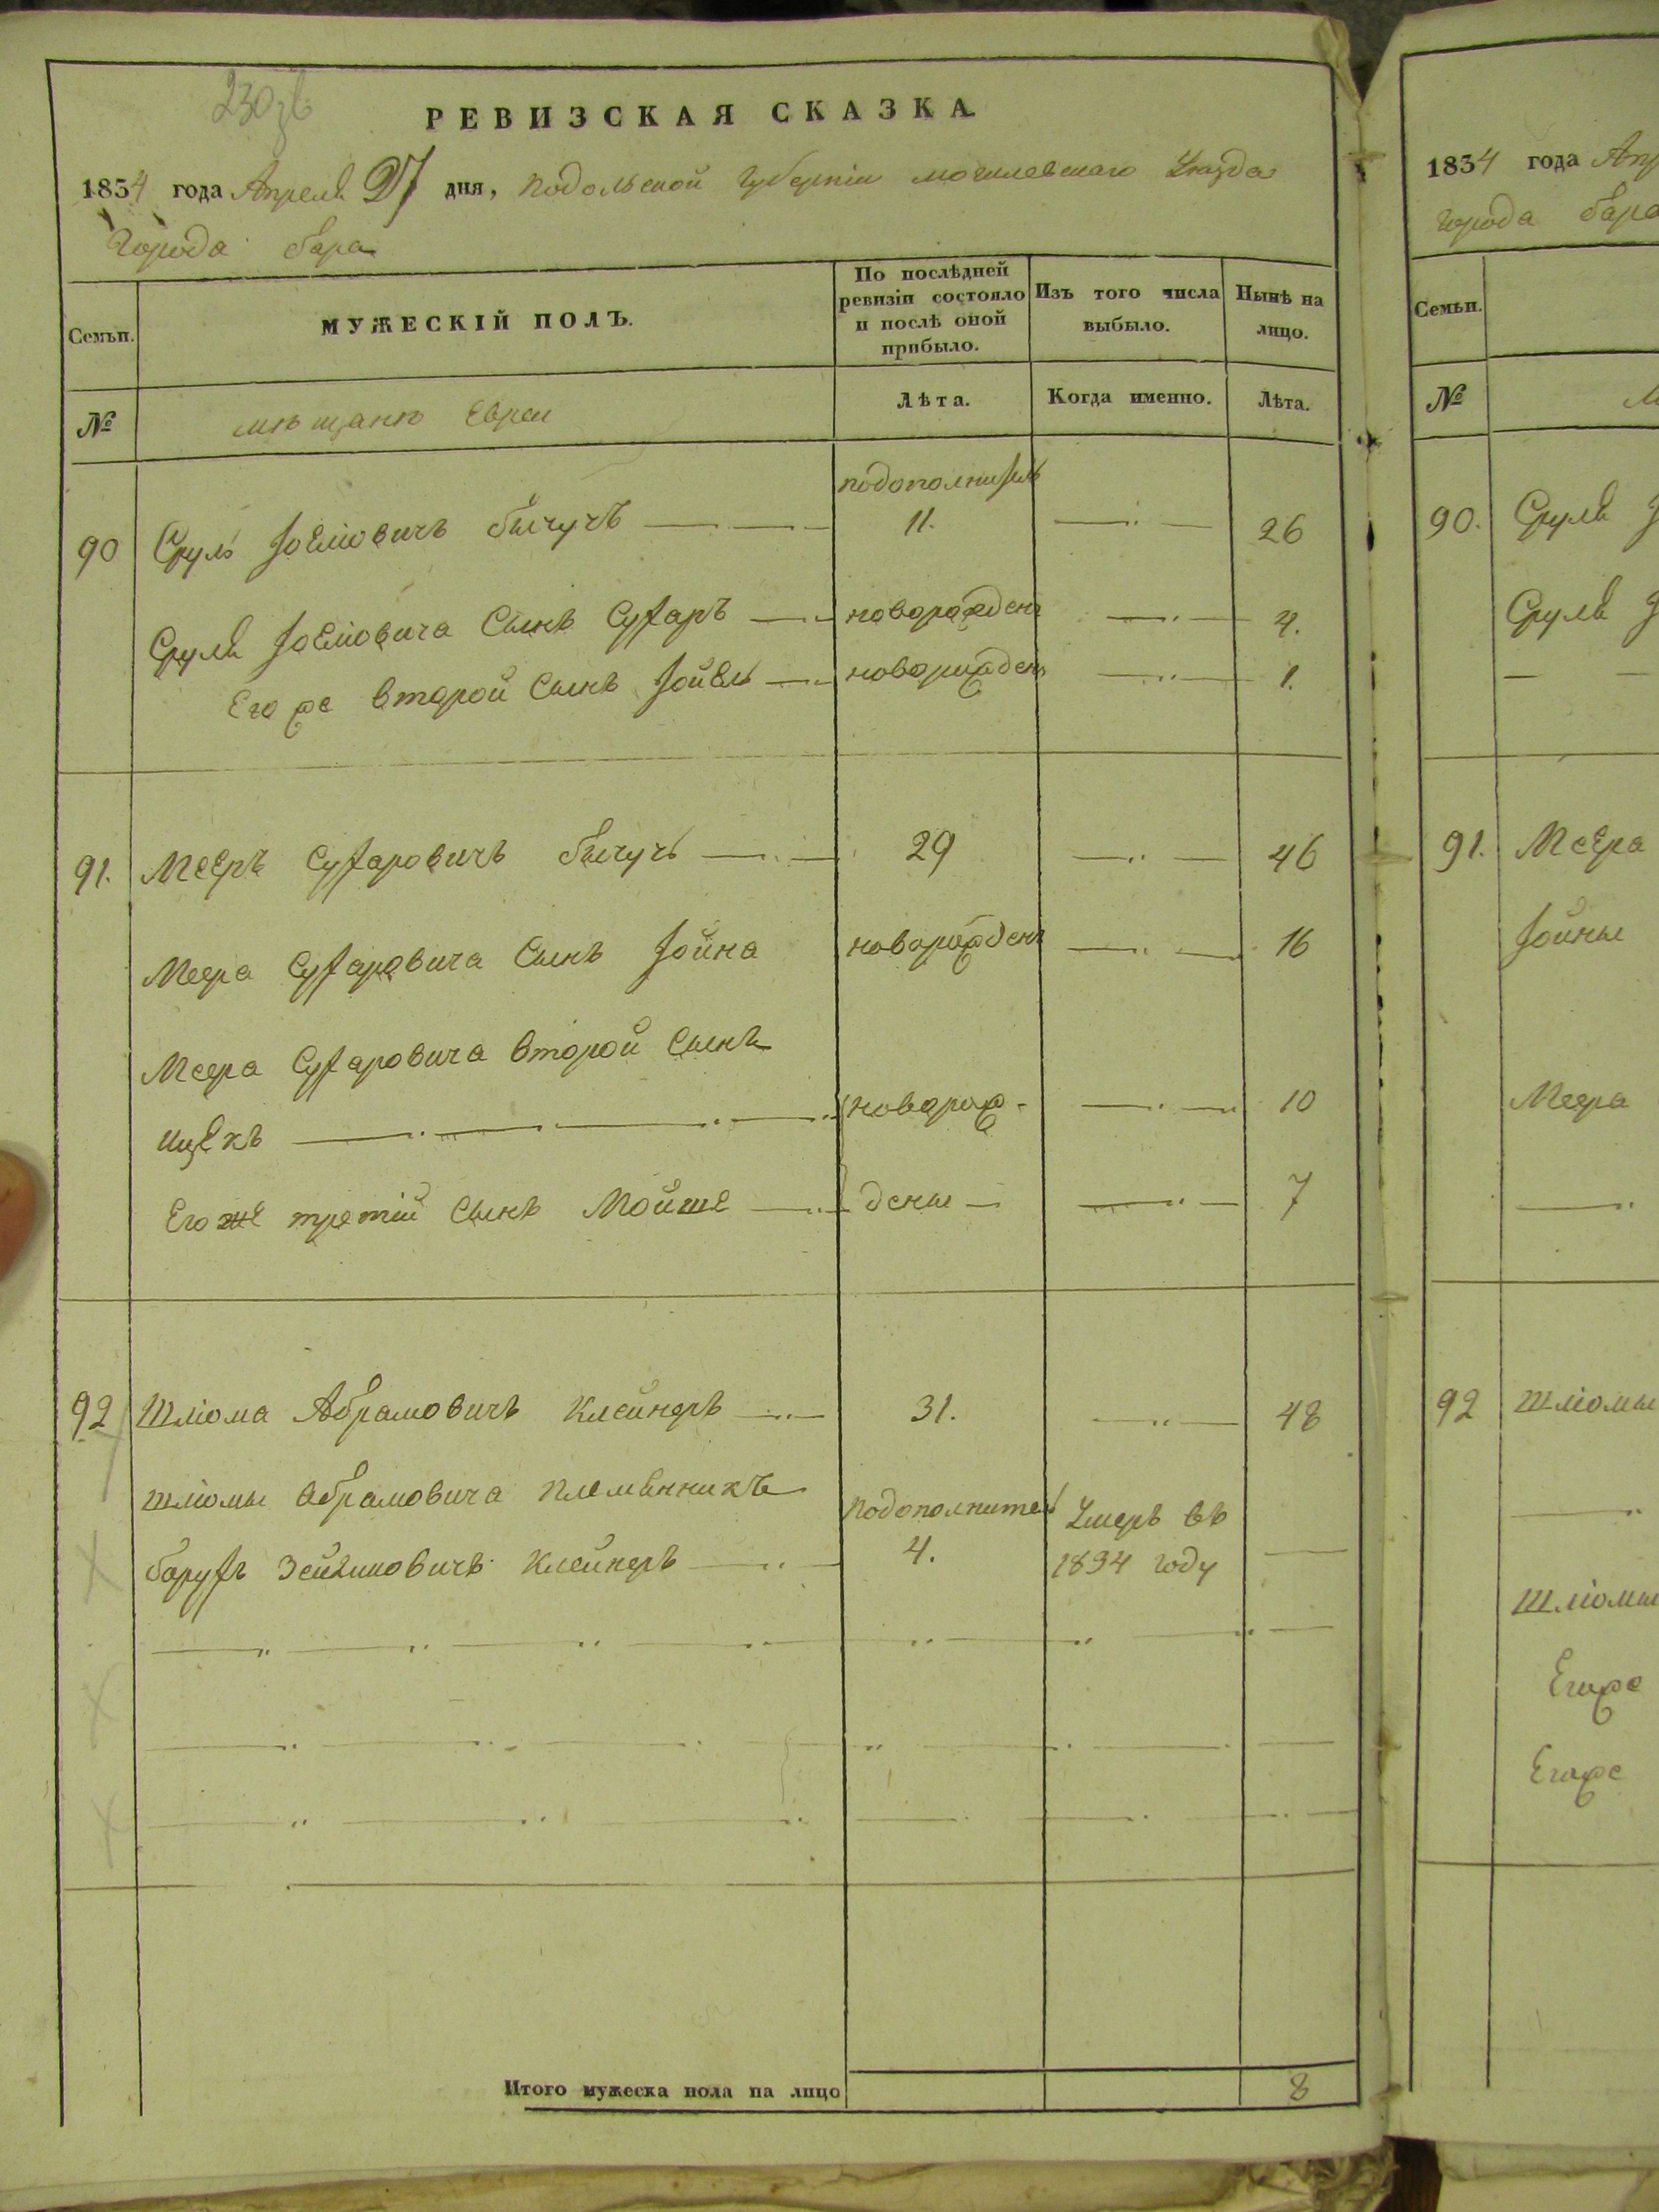 230зв
РЕВИЗСКАЯ СКАЗКА
1834 года Апреля 27 дня, подольской губернии могилевшаго Уѣзда
города бара
Семьи.
МУЖЕСКІЙ ПОЛЪ.
По послѣдней ревизіи состояло и послѣ оной прибыло.
Изъ того числа выбыло.
Нынѣ на лицо.
№
мѣщанѣ Евреи
Лѣта.
Когда именно.
Лѣта.
90 Сруль 26
подополнитель
11.
Сынъ новорожденъ 4.
Его же второй Сынъ новорожденъ 1.
91. Мееръ 29 46
Меера Сынъ Іойна новорожденъ 16
Меера второй Сынъ
Ицекъ новорож- 10
Его же третій Сынъ Мойше дены 7
92 Шліома Абрамовичъ Клейнеръ 31. 48
Шліомы Абрамовича племянникъ подополнитель Умеръ въ
Клейнеръ 4. 1834 году
Итого мужеска пола на лицо 8
1834 года Апр
города бара
Семьи.
№
90. Сруля
Сруля
91. Меера
Іойны
Меера
92 Шліомы
Шліомы
Егоже
Егоже